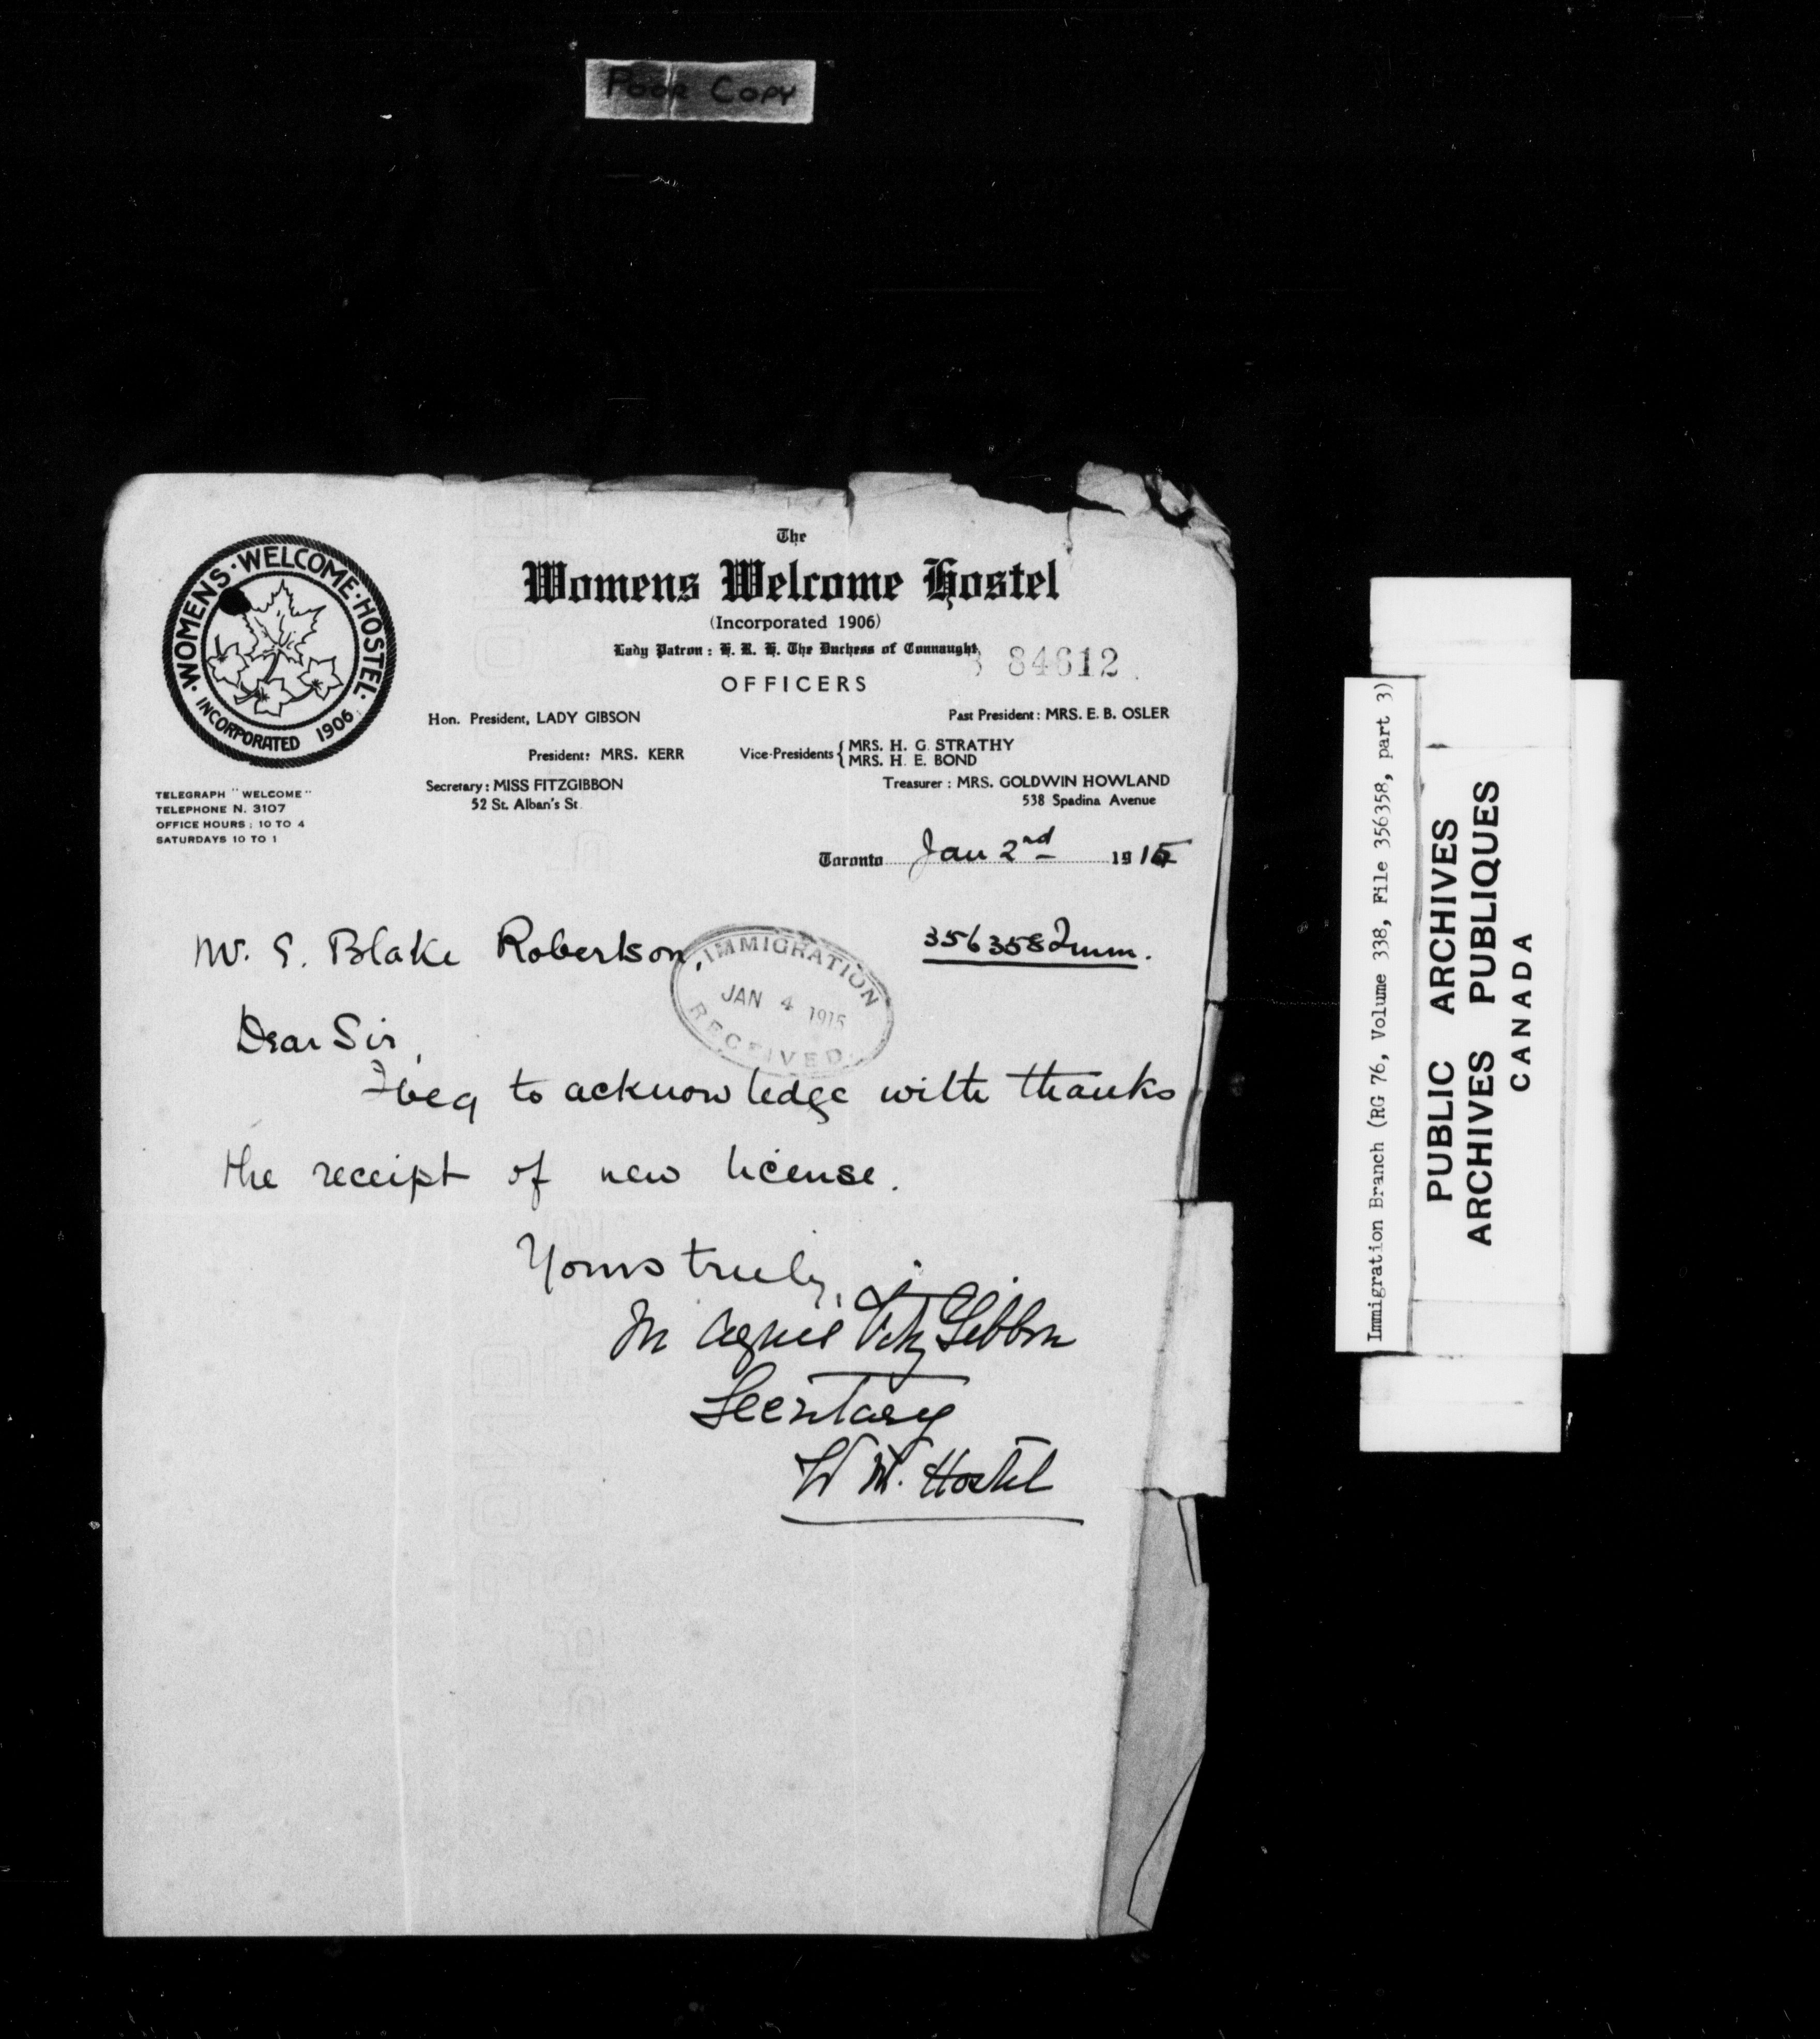 POOR COPY
WOMENS · WELCOME · HOSTEL ·
INCORPORATED 1906
TELEGRAPH "WELCOME"
TELEPHONE N. 3107
OFFICE HOURS: 10 TO 4
SATURDAYS 10 TO 1
The
Womens Welcome Hostel
(Incorporated 1906)
Lady Patron: H. R. H. The Duchess of Connaught
84612
OFFICERS
Hon. President, LADY GIBSON
Past President: MRS. E. B. OSLER
President: MRS. KERR
Vice-Presidents { MRS. H. G. STRATHY
MRS. H. E. BOND
Secretary: MISS FITZGIBBON
52 St. Alban's St.
Treasurer: MRS. GOLDWIN HOWLAND
538 Spadina Avenue
Toronto Jan 2nd 1915
Mr. S. Blake Robertson,
356358
IMMIGRATION
JAN 4 1915
RECEIVED
Dear Sir,
I beg to acknowledge with thanks
the receipt of new license.
Yours truly,
M Agnes FitzGibbon
Secretary
W W. Hostel
Immigration Branch (RG 76, Volume 338, File 356358, part 3)
PUBLIC ARCHIVES
ARCHIVES PUBLIQUES
CANADA